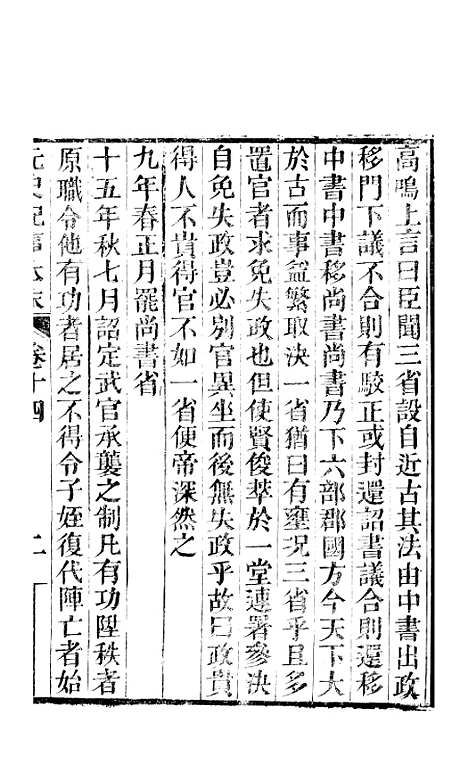 高鳴上言曰臣聞三省設自近古其法由中書出政
移門下議不合則有駮正或封還詔書議合則還移
中書中書移尚書尚書乃下六部郡國方今天下大
於古而事益繁取決一省猶曰有壅況三省乎且多
置官者求免失政也但使賢俊萃於一堂連署參決
自免失政豈必別官異坐而後無失政乎故曰政貴
得人不貴得官不如一省便帝深然之
九年春正月罷尚書省
十五年秋七月詔定武官承襲之制凡有功陞秩者
原職令他有功者居之不得令子姪復代陣亡者始
元史紀事本末 卷十四 二